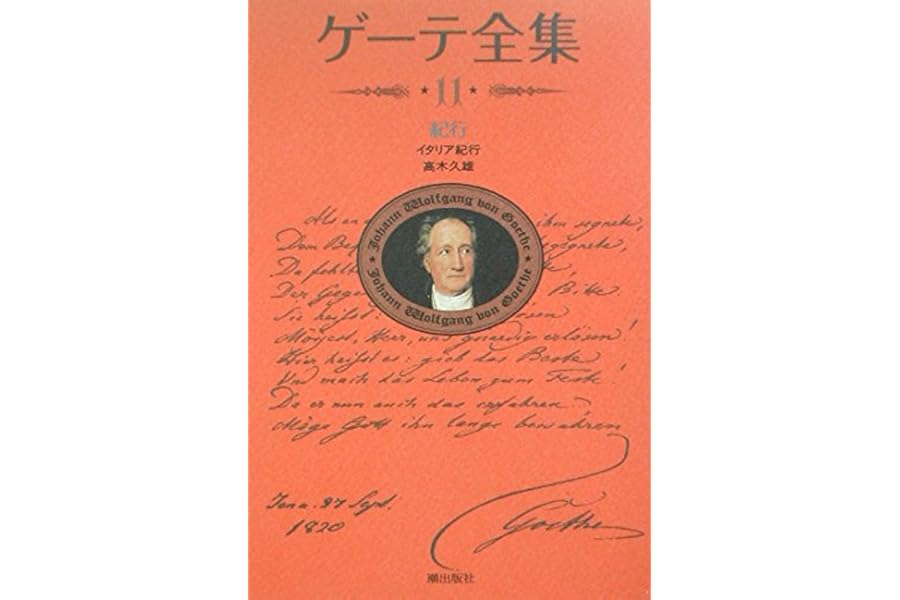 ゲーテ全集
11
紀行
イタリア紀行
高木久雄
Johann Wolfgang von Goethe
Johann Wolfgang von Goethe
Als er iben segnete,
Dem
Da fehlt
Der Bitte.
Sie heisst:
Mögest, Herr, uns gnaedig erlösen!
Hier heisst es: gieb das Beste
Und mach das Leben zum Feste!
Da er nun auch das erfahren
Möge Gott ihn lange bewahren
Jena. 27 Sept.
1820
Goethe
潮出版社